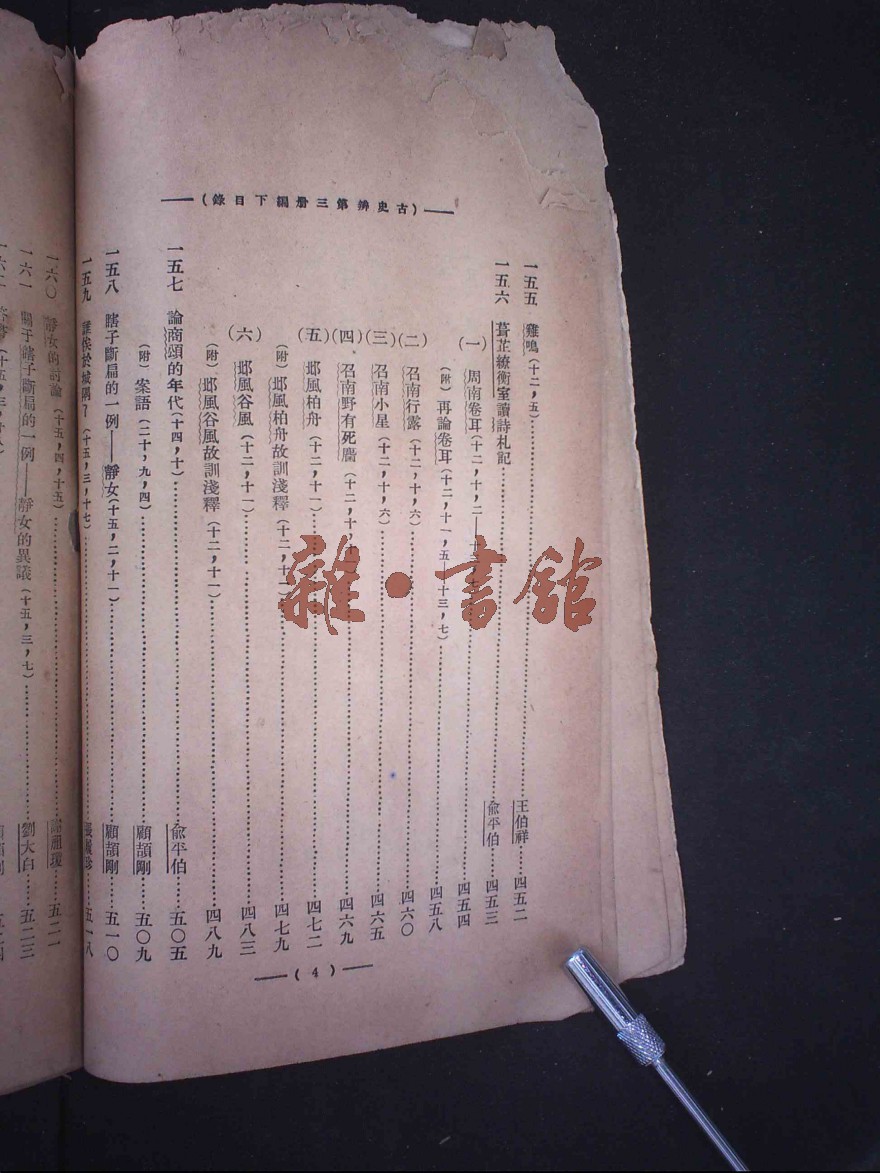 （古史辨第三册下編目錄）
一五五　雞鳴（十二，五）……王伯祥……四五二
一五六　葺芷繚衡室讀詩札記……俞平伯……四五三
（一）周南卷耳（十二，十，二——……四五四
（附）再論卷耳（十二，十一，五—十三，七）……四五八
（二）召南行露（十二，十，六）……四六〇
（三）召南小星（十二，十，六）……四六五
（四）召南野有死麕（十二，十，……四六九
（五）邶風柏舟（十二，十一）……四七二
（附）邶風柏舟故訓淺釋（十二，十一）……四七九
（六）邶風谷風（十二，十一）……四八三
（附）邶風谷風故訓淺釋（十二，十一）……四八九
一五七　論商頌的年代（十四，十）……俞平伯……五〇五
（附）案語（二十，九，四）……顧頡剛……五〇九
一五八　瞎子斷扁的一例——靜女（十五，二，十一）……顧頡剛……五一〇
一五九　誰俟於城隅？（十五，三，十七）……五一八
一六〇　靜女的討論（十五，四，十五）……五二一
一六一　關于瞎子斷扁的一例——靜女的異議（十五，三，七）……劉大白……五二三
（4）
雜·書館